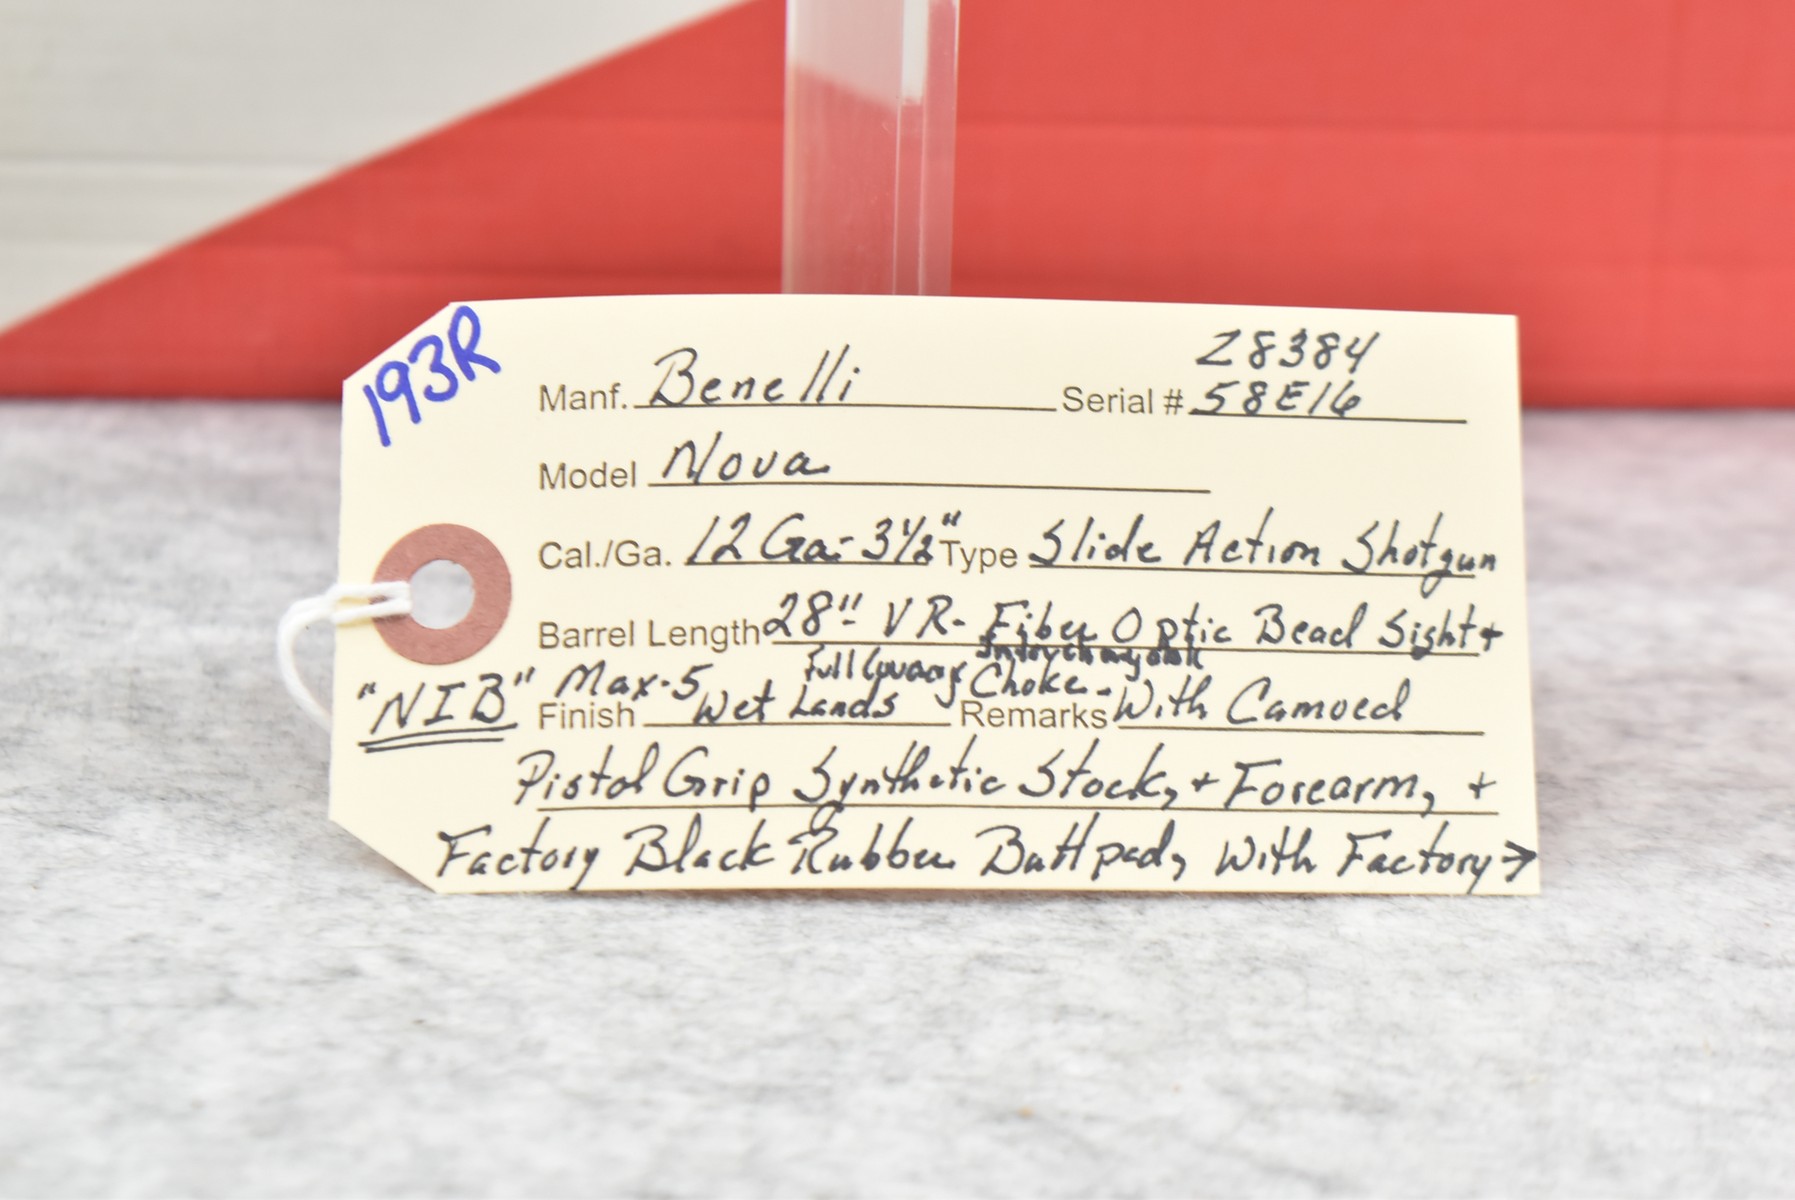 193R
Z8384
Manf. Benelli Serial # 58E16
Model Nova
Cal./Ga. 12 Ga.- 3½" Type Slide Action Shotgun
Barrel Length 28" VR- Fiber Optic Bead Sight +
Interchangeable
"NIB" Max-5 Full Coverage Choke-
Finish Wet Lands Remarks With Camoed
Pistol Grip Synthetic Stock, + Forearm, +
Factory Black Rubber Buttpad, With Factory →